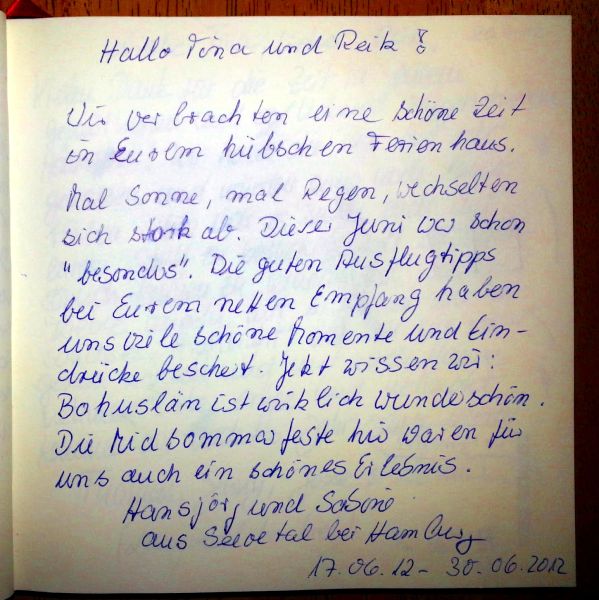 Hallo Tina und Reik!
Wir verbrachten eine schöne Zeit
in Eurem hübschen Ferienhaus.
Mal Sonne, mal Regen, wechselten
sich stark ab. Dieser Juni war schon
"besonders". Die guten Ausflugtipps
bei Eurem netten Empfang haben
uns viele schöne Momente und Ein-
drücke beschert. Jetzt wissen wir:
Bohuslän ist wirklich wunderschön.
Die Midsommarfeste hier waren für
uns auch ein schönes Erlebnis.
Hansjörg und Sabine
aus Seevetal bei Hamburg
17.06.12 - 30.06.2012